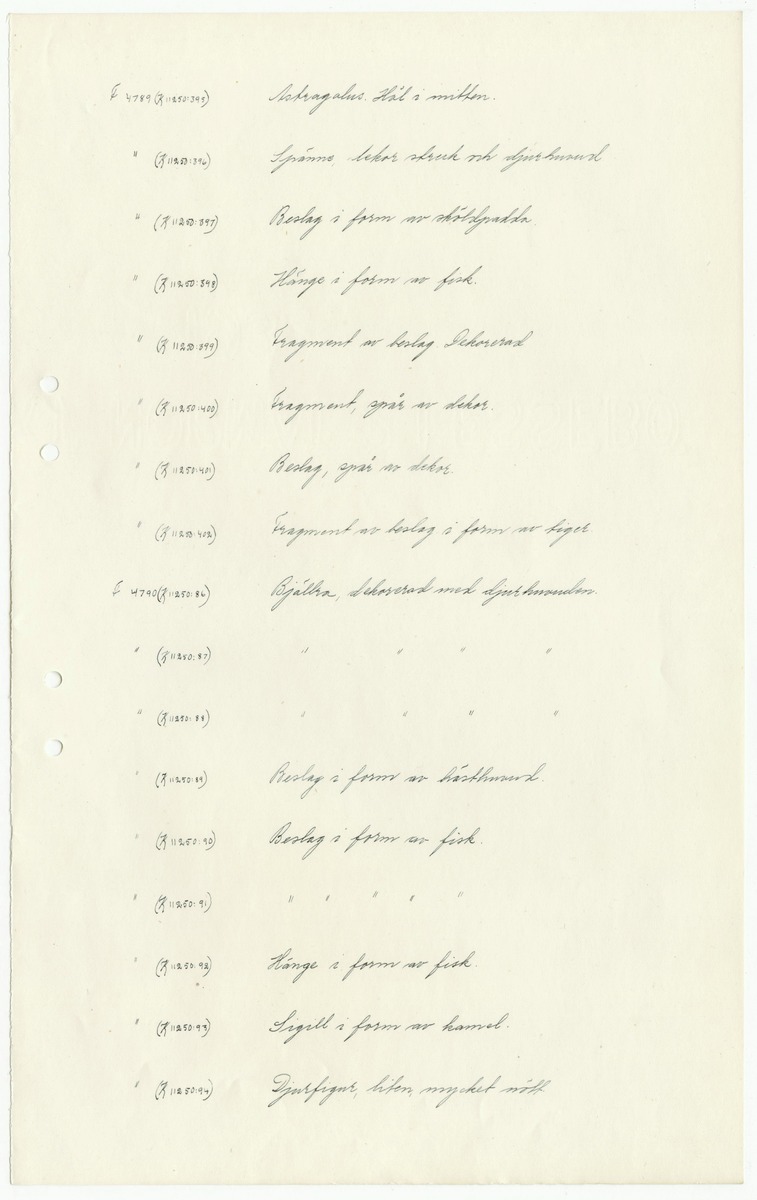 F 4789 (K 11250:395) Astragalus. Hål i mitten.
" (K 11250:396) Spänne, dekor streck och djurhuvud
" (K 11250:397) Beslag i form av sköldpadda.
" (K 11250:398) Hänge i form av fisk.
" (K 11250:399) Fragment av beslag. Dekorerad
" (K 11250:400) Fragment, spår av dekor.
" (K 11250:401) Beslag, spår av dekor.
" (K 11250:402) Fragment av beslag i form av tiger.
F 4790 (K 11250:86) Bjällra, dekorerad med djurhuvuden.
" (K 11250:87) " " " "
" (K 11250:88) " " " "
" (K 11250:89) Beslag i form av hästhuvud.
" (K 11250:90) Beslag i form av fisk.
" (K 11250:91) " " " " "
" (K 11250:92) Hänge i form av fisk.
" (K 11250:93) Sigill i form av kamel.
" (K 11250:94) Djurfigur, liten, mycket nött